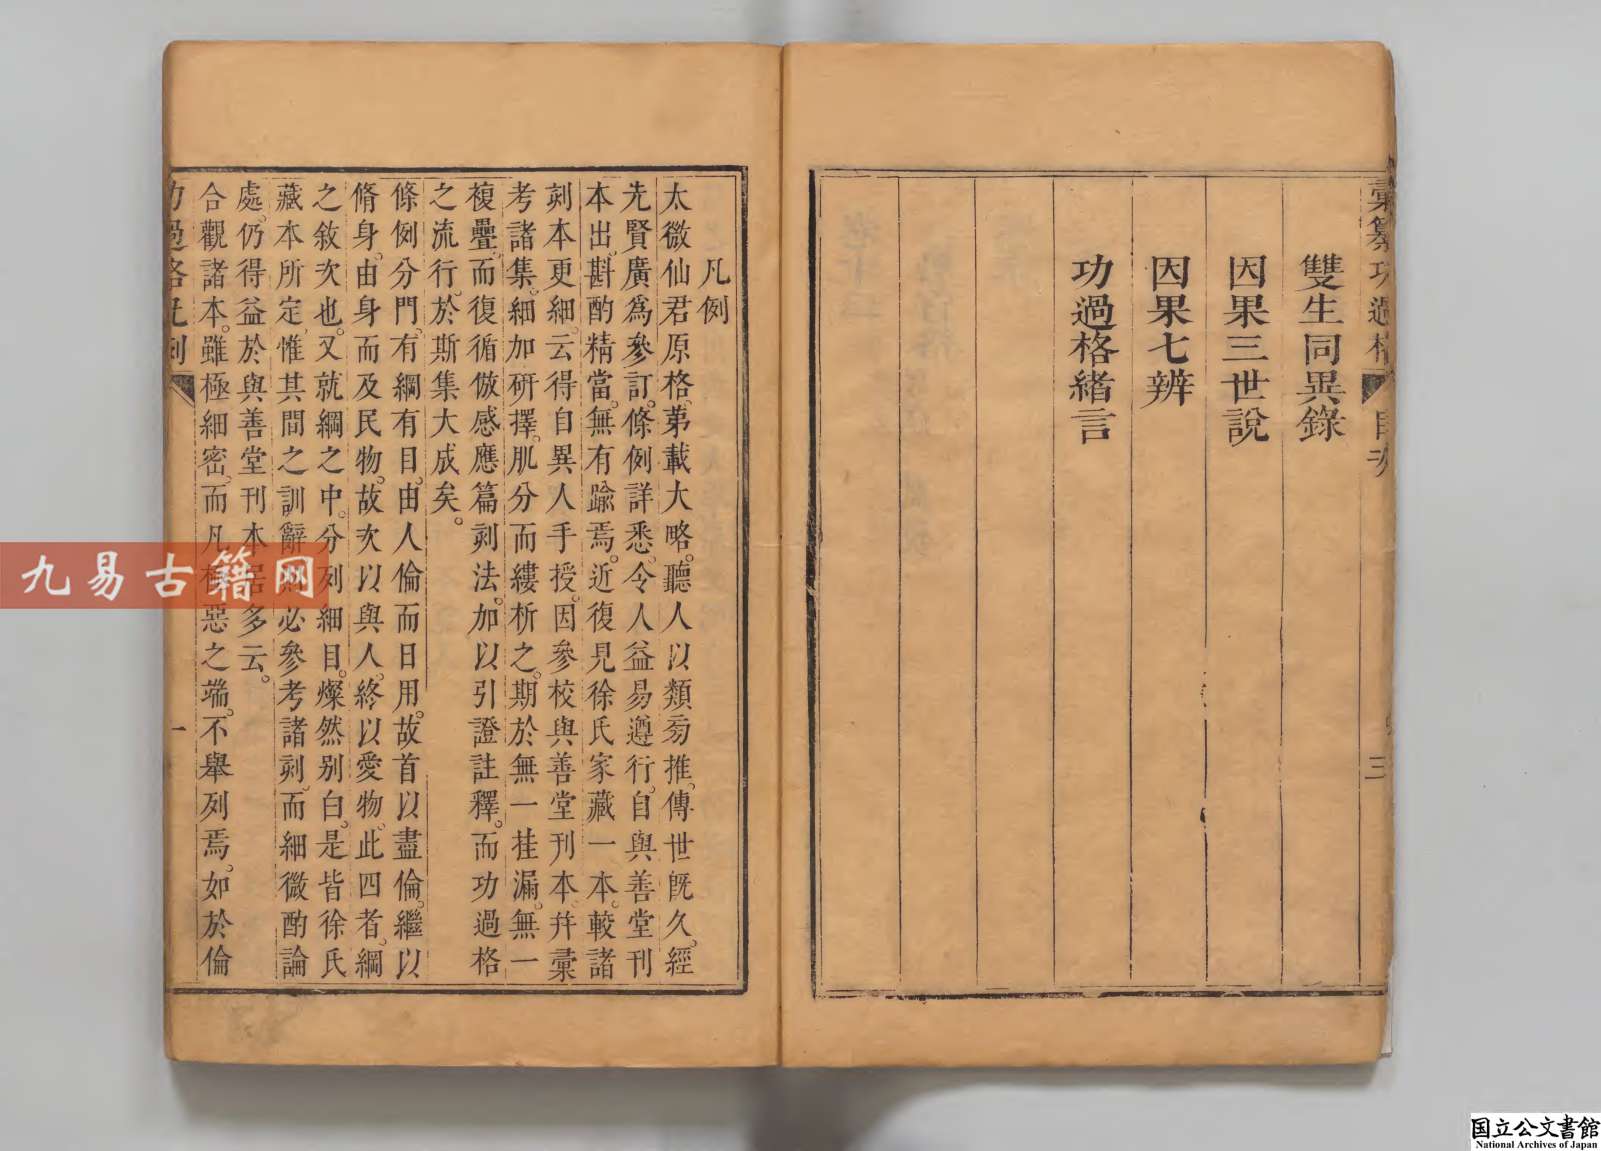 彙纂功過格 目次 三
雙生同異錄
因果三世說
因果七辨
功過格緒言
凡例
太微仙君原格。苐載大略。聽人以類旁推。傳世旣久。經
先賢廣爲參訂。條例詳悉。令人益易遵行。自與善堂刊
本出。斟酌精當。無有踰焉。近復見徐氏家藏一本。較諸
刻本更細。云得自異人手授。因參校與善堂刊本。幷彙
考諸集。細加硏擇。肌分而縷析之。期於無一挂漏。無一
複疊。而復循倣感應篇刻法。加以引證註釋。而功過格
之流行。於斯集大成矣。
條例分門。有綱有目。由人倫而日用。故首以盡倫。繼以
脩身。由身而及民物。故次以與人。終以愛物。此四者。綱
之敘次也。又就綱之中。分列細目。燦然別白。是皆徐氏
藏本所定。惟其間之訓辭。必參考諸刻。而細微酌論
處。仍得益於與善堂刊本居多云。
合觀諸本。雖極細密。而凡極惡之端。不舉列焉。如於倫
功過格凡例 一
九易古籍网
国立公文書館
National Archives of Japan